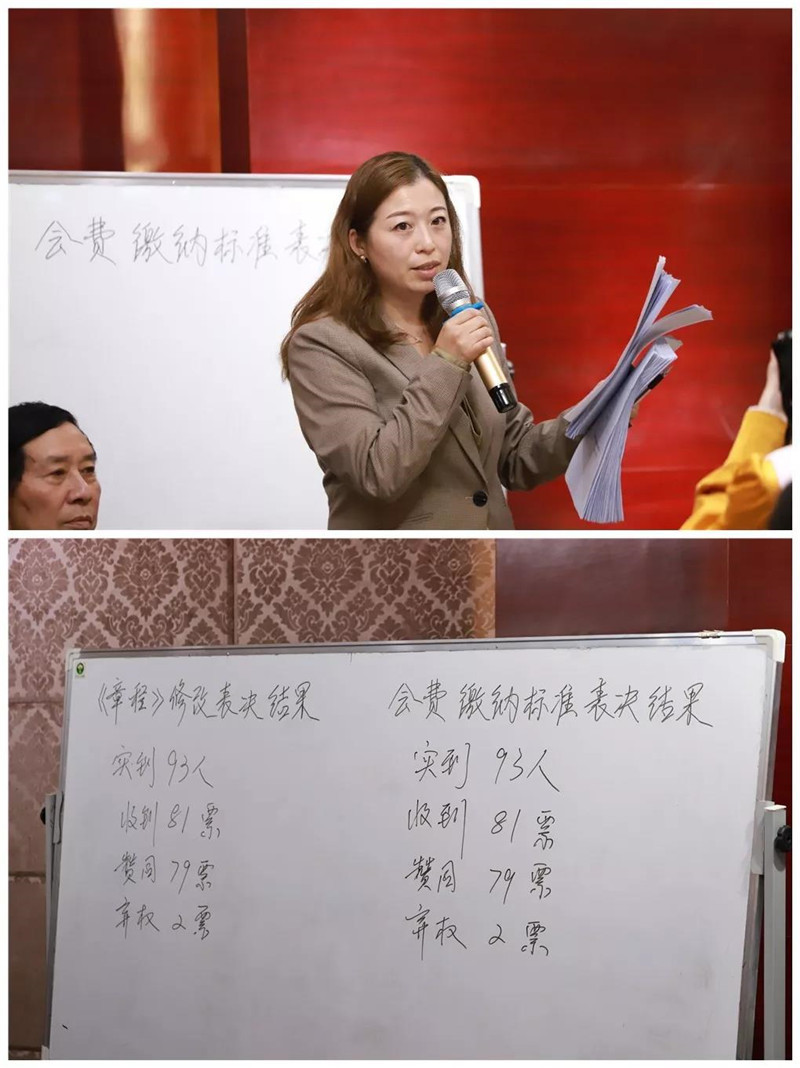 会费缴纳标准表
《章程》修改表决结果
实到 93人
收到 81票
赞同 79票
弃权 2票
会费缴纳标准表决结果
实到 93人
收到 81票
赞同 79票
弃权 2票